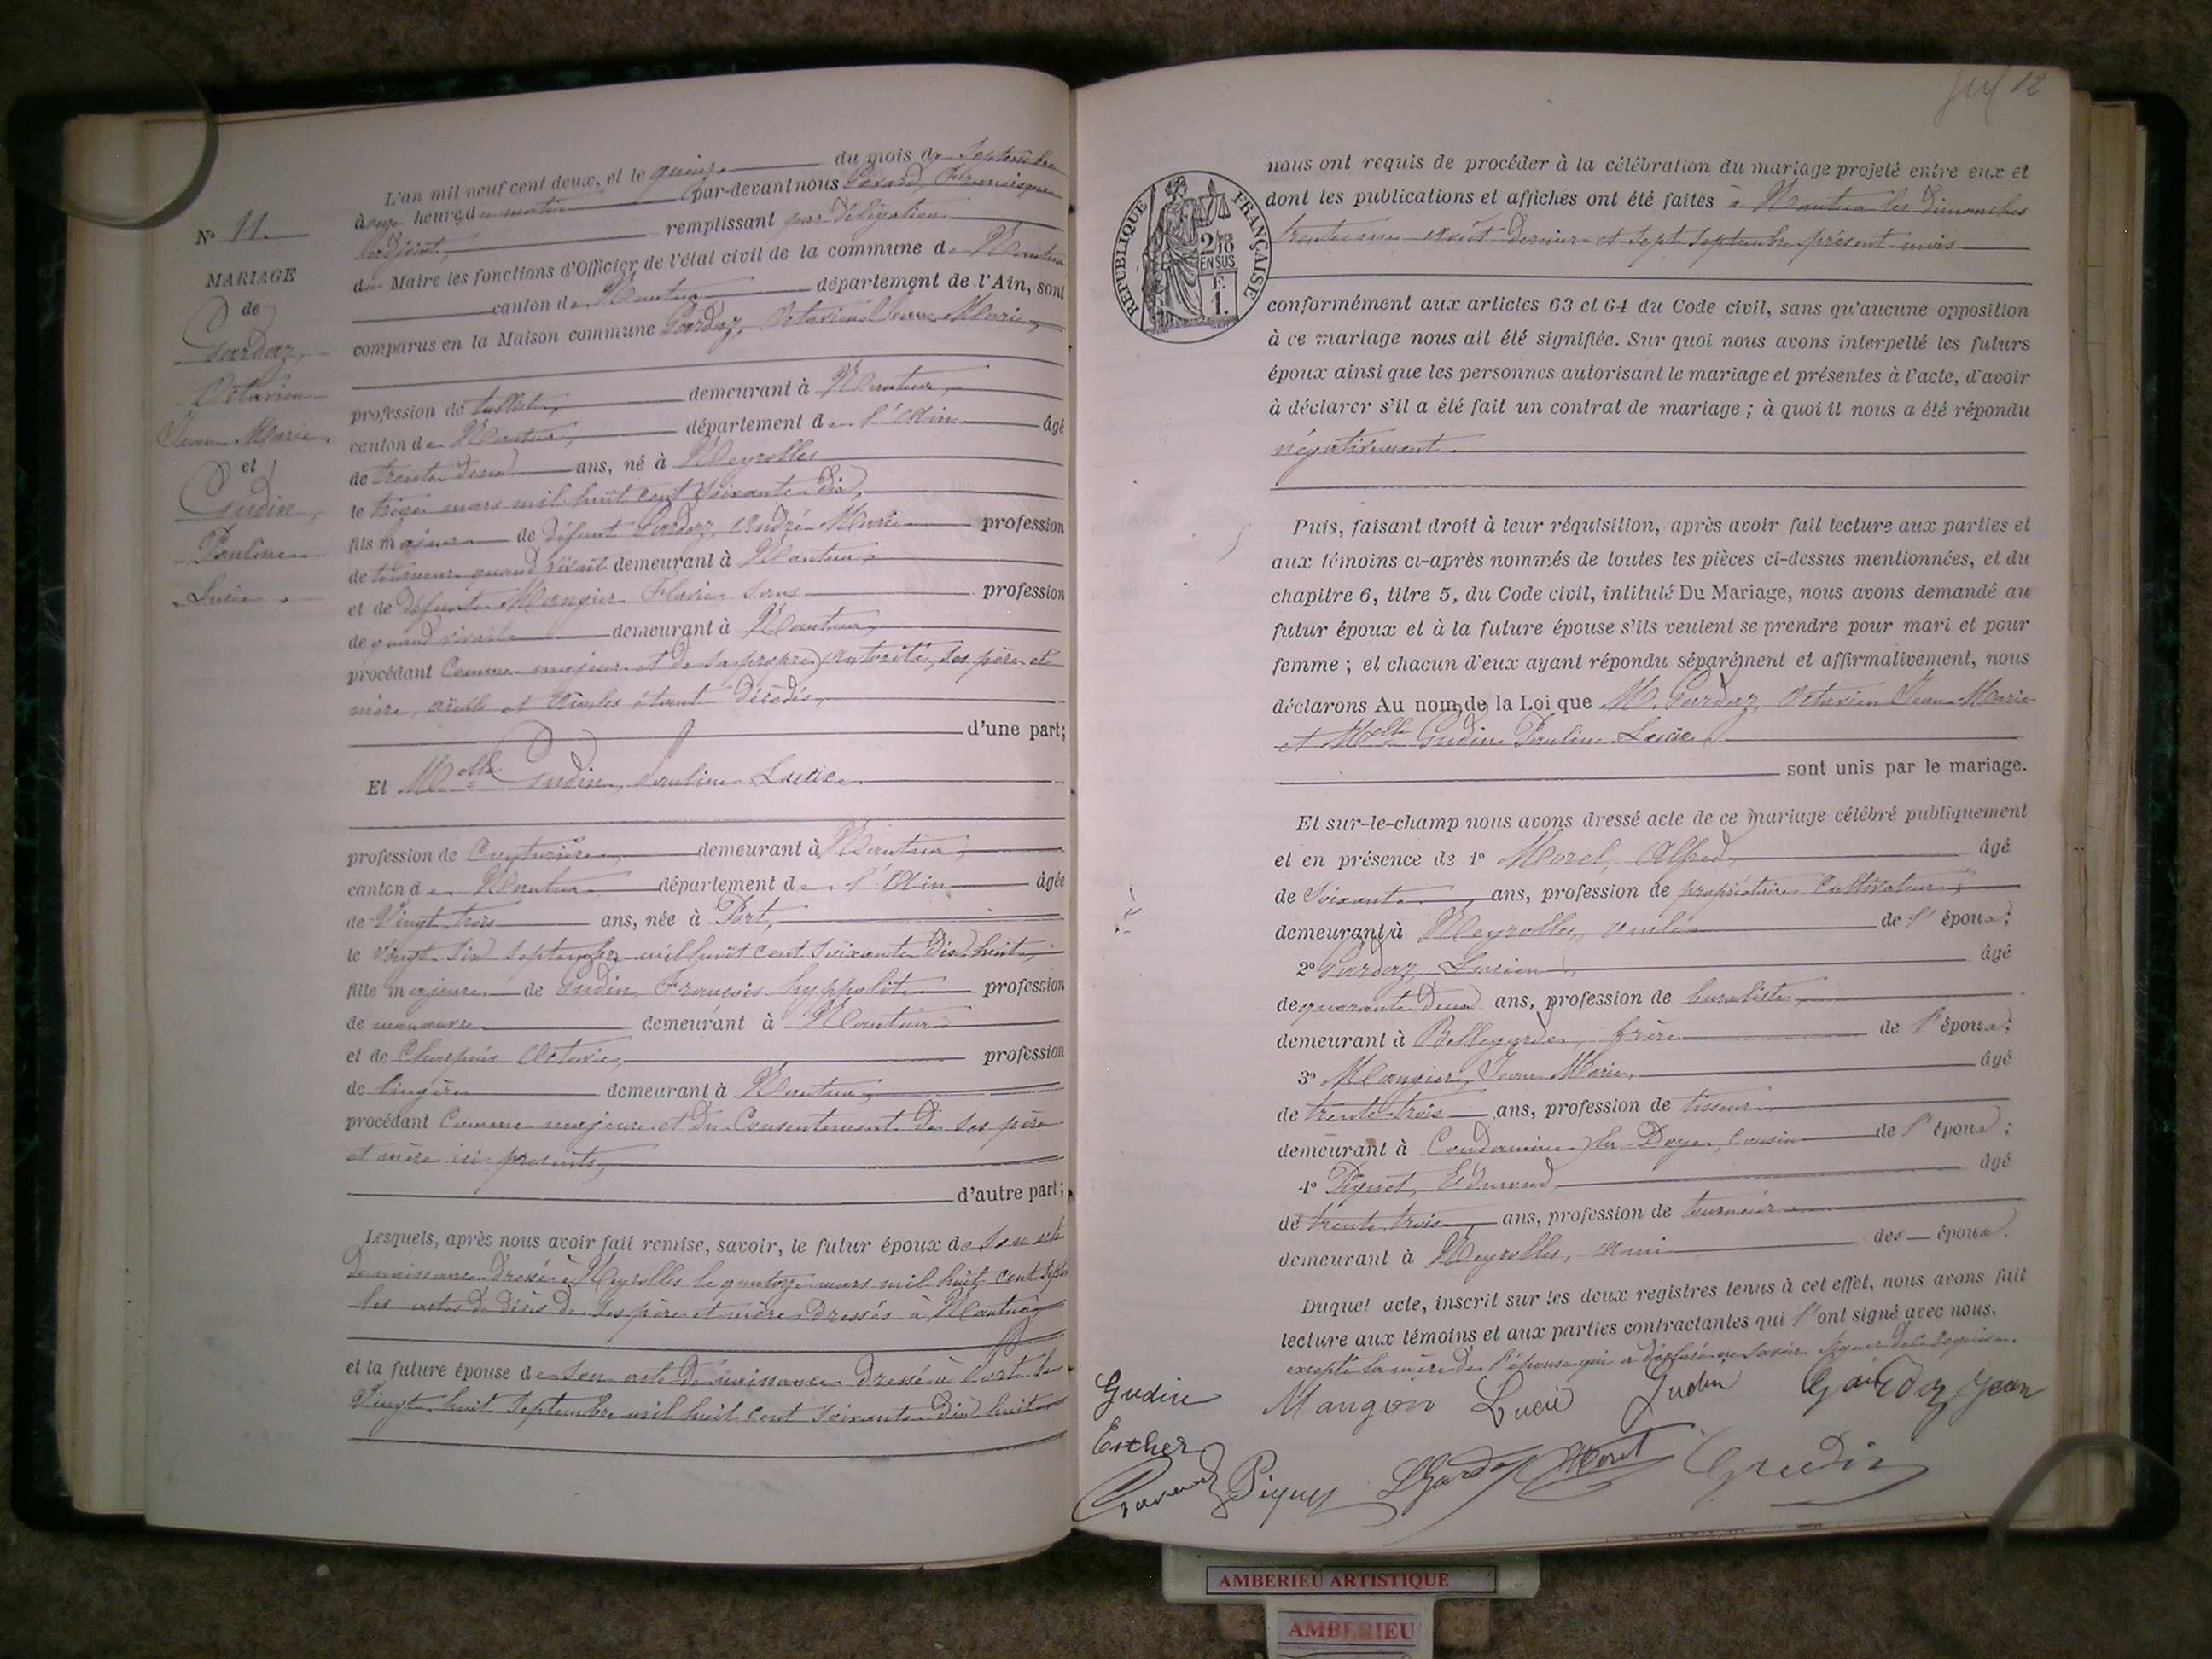 L'an mil neuf cent deux, et le quinze du mois de Septembre
à onze heures du matin par-devant nous Francisque
adjoint, remplissant par délégation
du Maire les fonctions d'Officier de l'état civil de la commune de Nantua
canton de Nantua département de l'Ain, sont
comparus en la Maison commune Gardaz, Octavien Jean Marie,
profession de demeurant à Nantua,
canton de Nantua, département de l'Ain âgé
de trente deux ans, né à Neyrolles
le treize mars mil huit cent soixante dix,
fils majeur de défunt Gardaz, André Marie profession
de tourneur quand vivait demeurant à Nantua
et de défunte Mangier Flavie sans profession
de quand vivait demeurant à Nantua,
procédant comme majeur et de sa propre autorité, ses père et
mère, aïeuls et aïeules étant décédés,
d'une part;
Et Melle Gudin, Pauline Lucie
profession de Couturière, demeurant à Nantua,
canton de Nantua département de l'Ain âgée
de Vingt trois ans, née à Port,
le vingt six septembre mil huit cent soixante dix huit,
fille majeure de Gudin, François hyppolite profession
de manœuvre demeurant à Nantua
et de Octavie, profession
de lingère demeurant à Nantua,
procédant Comme majeure et du Consentement de ses père
et mère ici présents,
d'autre part;
Lesquels, après nous avoir fait remise, savoir, le futur époux de son acte
de naissance dressé à Neyrolles le quatorze mars mil huit cent
les actes de décès de ses père et mère dressés à Nantua
et la future épouse de son acte de naissance dressé à Port le
Vingt huit Septembre mil huit cent soixante dix huit
N° 11.
MARIAGE
de
Gardaz,
Octavien
Jean Marie
et
Gudin,
Pauline
Lucie
12
RÉPUBLIQUE FRANÇAISE
2/10
EN SUS
F.
1.
nous ont requis de procéder à la célébration du mariage projeté entre eux et
dont les publications et affiches ont été faites à Nantua les dimanches
trente un août dernier et sept septembre présent mois
conformément aux articles 63 et 64 du Code civil, sans qu'aucune opposition
à ce mariage nous ait été signifiée. Sur quoi nous avons interpellé les futurs
époux ainsi que les personnes autorisant le mariage et présentes à l'acte, d'avoir
à déclarer s'il a été fait un contrat de mariage ; à quoi il nous a été répondu
négativement.
Puis, faisant droit à leur réquisition, après avoir fait lecture aux parties et
aux témoins ci-après nommés de toutes les pièces ci-dessus mentionnées, et du
chapitre 6, titre 5, du Code civil, intitulé Du Mariage, nous avons demandé au
futur époux et à la future épouse s'ils veulent se prendre pour mari et pour
femme ; et chacun d'eux ayant répondu séparément et affirmativement, nous
déclarons Au nom de la Loi que M. Gardaz, Octavien Jean Marie
et Melle Gudin Pauline Lucie
sont unis par le mariage.
Et sur-le-champ nous avons dressé acte de ce mariage célébré publiquement
et en présence de 1° Morel, Alfred, âgé
de Soixante ans, profession de propriétaire cultivateur,
demeurant à Neyrolles, de l'époux;
2° Gardaz, Lucien, âgé
de quarante deux ans, profession de buraliste,
demeurant à Bellegarde, frère de l'époux;
3° Mangier, Jean Marie, âgé
de trente trois ans, profession de tisseur
demeurant à Condamine la Doye, cousin de l'époux;
4° Piquet, Edmond, âgé
de trente trois ans, profession de tourneur
demeurant à Neyrolles, ami des époux.
Duquel acte, inscrit sur les deux registres tenus à cet effet, nous avons fait
lecture aux témoins et aux parties contractantes qui l'ont signé avec nous.
excepté la mère de l'épouse qui a déclaré ne savoir signer de ce requise.
Gudin Lucie Gudin Gardaz Jean
Esther
Piquet LGardaz Morel Gudin
AMBERIEU ARTISTIQUE
AMBERIEU